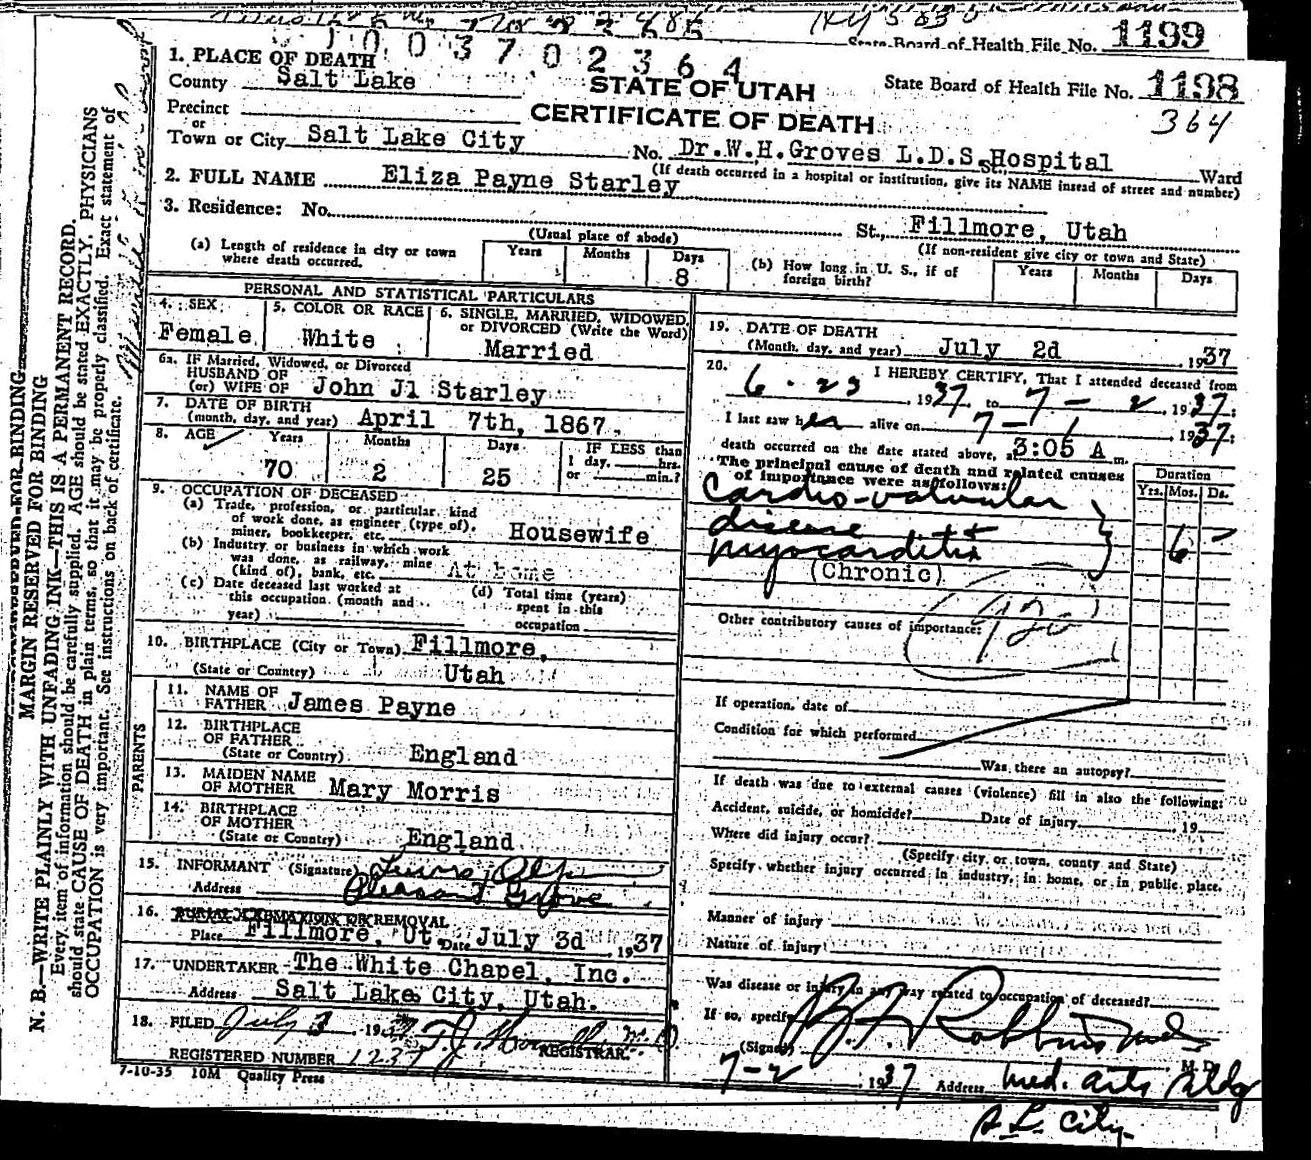 State Board of Health File No. 1199
1 0 0 3 7 0 2 3 6 4
1. PLACE OF DEATH
County Salt Lake
STATE OF UTAH
State Board of Health File No. 1198
Precinct
CERTIFICATE OF DEATH
364
or
Town or City Salt Lake City No. Dr.W.H.Groves L.D.S. St. Hospital Ward
(If death occurred in a hospital or institution, give its NAME insead of street and number)
2. FULL NAME Eliza Payne Starley
3. Residence: No. St., Fillmore, Utah
(Usual place of abode) (If non-resident give city or town and State)
(a) Length of residence in city or town where death occurred. Years Months Days 8
(b) How long in U. S., if of foreign birth? Years Months Days
PERSONAL AND STATISTICAL PARTICULARS
4. SEX Female
5. COLOR OR RACE White
6. SINGLE, MARRIED, WIDOWED, or DIVORCED (Write the Word) Married
6a. IF Married, Widowed, or Divorced
HUSBAND OF
(or) WIFE OF John Jl Starley
7. DATE OF BIRTH
(month, day, and year) April 7th, 1867.
8. AGE Years Months Days IF LESS than
1 day, hrs.
or min.?
70 2 25
9. OCCUPATION OF DECEASED
(a) Trade, profession, or particular kind
of work done, as engineer (type of),
miner, bookkeeper, etc. Housewife
(b) Industry or business in which work
was done, as railway, mine
(kind of), bank, etc. At home
(c) Date deceased last worked at
this occupation. (month and
year)
(d) Total time (years)
spent in this
occupation
10. BIRTHPLACE (City or Town) Fillmore,
(State or Country) Utah
PARENTS
11. NAME OF
FATHER James Payne
12. BIRTHPLACE
OF FATHER
(State or Country) England
13. MAIDEN NAME
OF MOTHER Mary Morris
14. BIRTHPLACE
OF MOTHER
(State or Country) England
15. INFORMANT (Signature)
Address Pleasant Grove
16. BURIAL, CREMATION OR REMOVAL
Place Fillmore, Ut. Date July 3d 1937
17. UNDERTAKER The White Chapel, Inc.
Address Salt Lake City, Utah.
18. FILED July 3 1937
REGISTRAR.
REGISTERED NUMBER 1237
7-10-35 10M Quality Press
19. DATE OF DEATH
(Month, day, and year) July 2d 1937
20. I HEREBY CERTIFY, That I attended deceased from
6-23, 1937, to 7-2, 1937;
I last saw her alive on 7-1, 1937;
death occurred on the date stated above, at 3:05 A m.
The principal cause of death and related causes
of importance were as follows:
Duration
Yrs. Mos. Ds.
Cardio-valvular
disease +
myocarditis
6 -
(Chronic)
Other contributory causes of importance:
If operation, date of
Condition for which performed
Was there an autopsy?
If death was due to external causes (violence) fill in also the following:
Accident, suicide, or homicide? Date of injury 19
Where did injury occur?
(Specify city or town, county and State)
Specify whether injury occurred in industry, in home, or in public place.
Manner of injury
Nature of injury
Was disease or injury in any way related to occupation of deceased?
If so, specify
(Signed) M. D.
7-2, 1937 Address Med. Arts Bldg
S. L. City
MARGIN RESERVED FOR BINDING
N. B.—WRITE PLAINLY WITH UNFADING INK—THIS IS A PERMANENT RECORD.
Every item of information should be carefully supplied. AGE should be stated EXACTLY. PHYSICIANS
should state CAUSE OF DEATH in plain terms, so that it may be properly classified. Exact statement of
OCCUPATION is very important. See instructions on back of certificate.